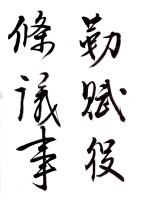 勤賦役
條議事